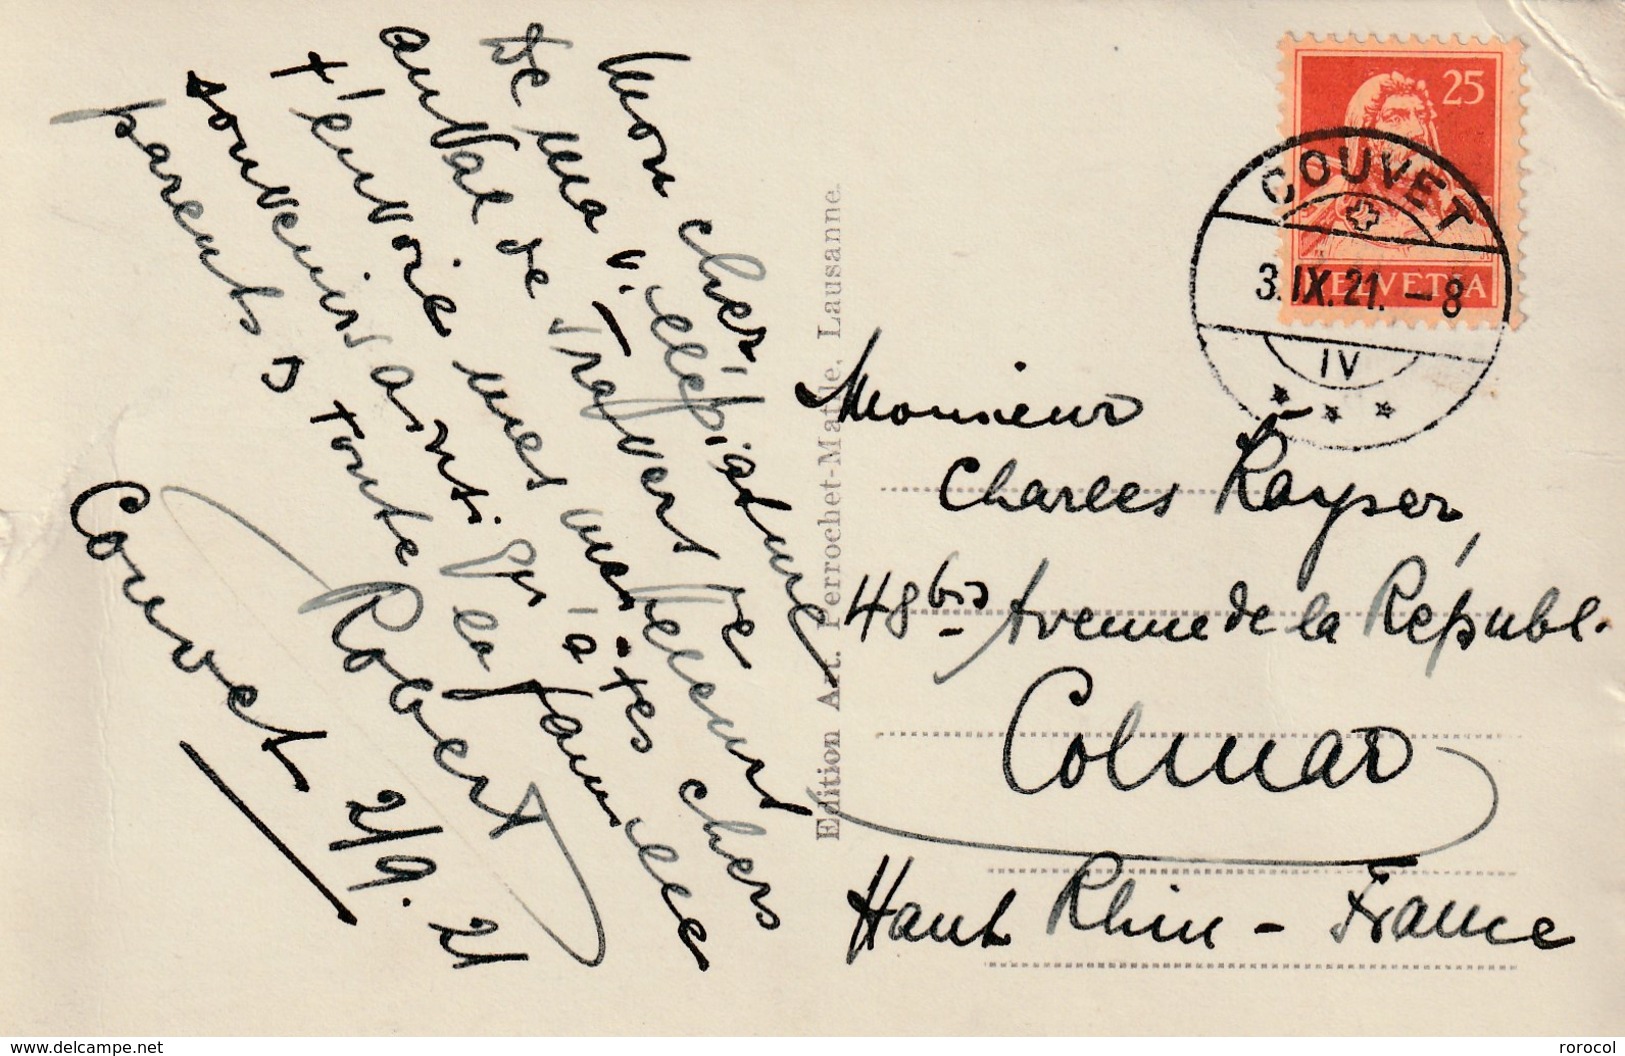 Mon cher,
De ma villégiature
au Val de Travers je
t'envoie mes meilleurs
souvenirs ainsi qu'à tes chers
parents & toute la famille
Robert
Couvet 2/9. 21
Edition Art. Perrochet-Matile, Lausanne.
25
HELVETIA
COUVET
3.IX.21.-8
IV
Monsieur
Charles Kayser,
48bis Avenue de la Républ.
Colmar
Haut Rhin - France
www.delcampe.net
rorocol